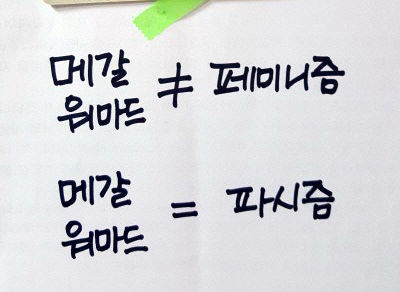 메갈 ≠ 페미니즘
워마드
메갈 = 파시즘
워마드